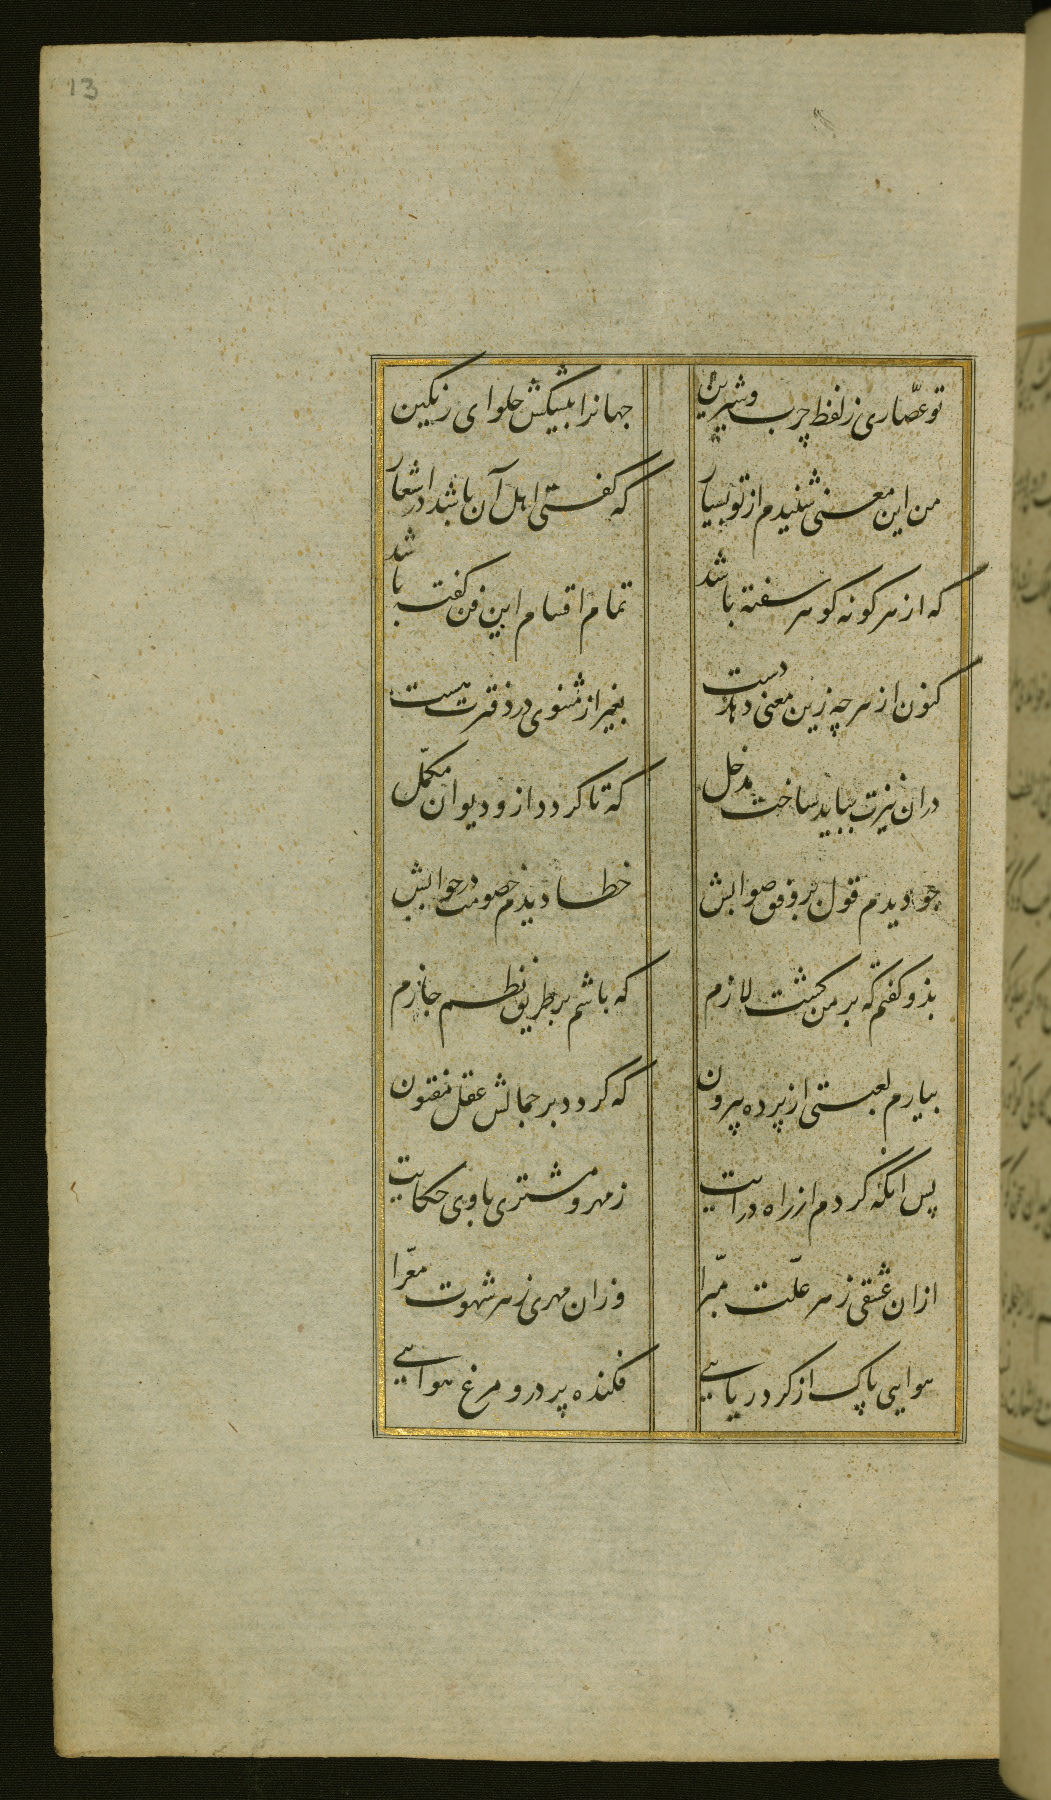 13
تو عصّاری ز لفظ چرب و شیرین جهانرا پیشکش حلوای رنگین
من این معنی شنیدم از تو بسیار که گفتی اهل آن باشد در اشعار
که از هر کونه کوهر سفته باشد تمام اقسام این فن کفته باشد
کنون از هر چه زین معنی دهد دست بغیر از مثنوی در دفترت هست
دران نیزت بباید ساخت مدخل که تا کردد ازو دیوان مکمّل
چو دیدم قول بر وفق صوابش خطا دیدم خصومت در جوابش
بذو کفتم که بر من کشت لازم که باشم بر طریق نظم جازم
بیارم لعبتی از پرده بیرون که کردد بر جمالش عقل مفتون
پس انکه کردم از راه درایت ز مهر و مشتری با وی حکایت
ازان عشقی ز هر علّت مبّرا وزان مهری ز هر شهوت معّرا
هوایی پاک از کرد ریایی فکنده پر درو مرغ هوایی